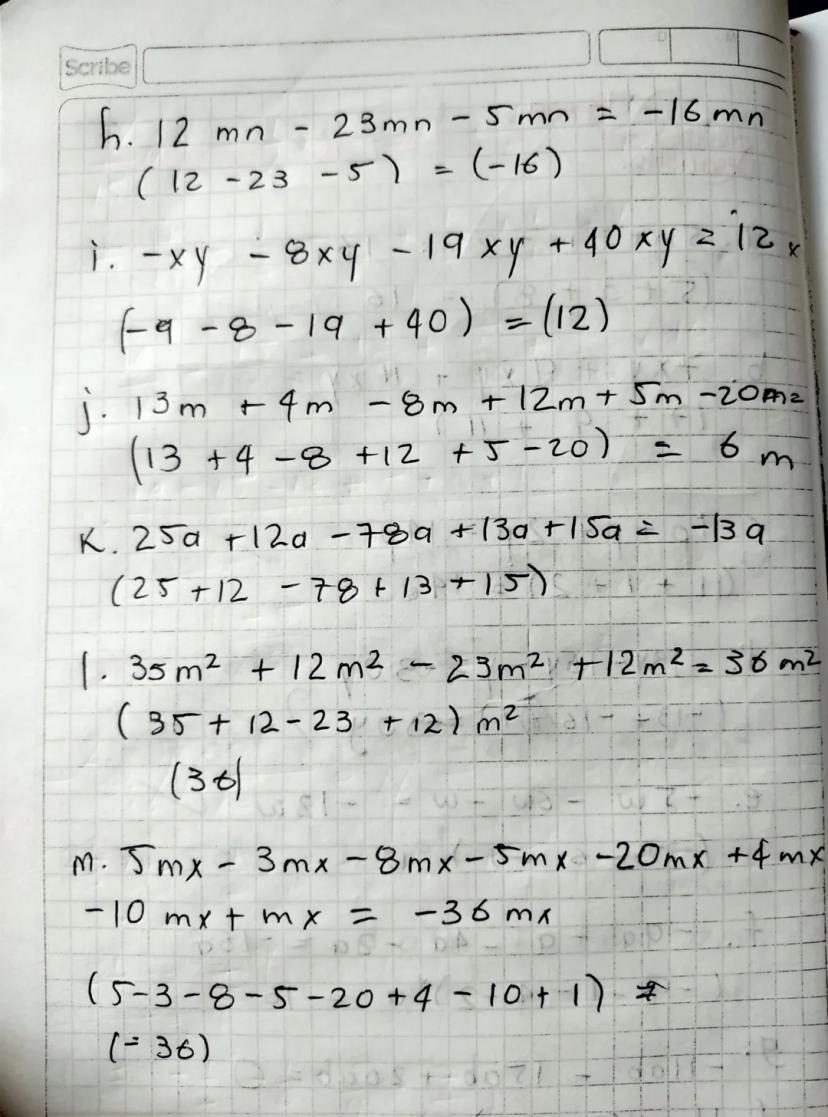 Scribe
h. 12 mn - 23mn - 5mn = -16 mn
(12 - 23 - 5) = (-16)
i. -xy - 8xy - 19 xy + 40 xy = 12 x
(-9 - 8 - 19 + 40) = (12)
j. 13m + 4m - 8m + 12m + 5m - 20m =
(13 + 4 - 8 + 12 + 5 - 20) = 6 m
K. 25a + 12a - 78a + 13a + 15a = -13a
(25 + 12 - 78 + 13 + 15)
l. 35m² + 12m² - 23m² + 12m² = 36 m²
(35 + 12 - 23 + 12) m²
(36)
m. 5mx - 3mx - 8mx - 5mx - 20mx + 4mx
-10 mx + mx = -36 mx
(5-3-8-5-20+4-10+1) =
(-36)